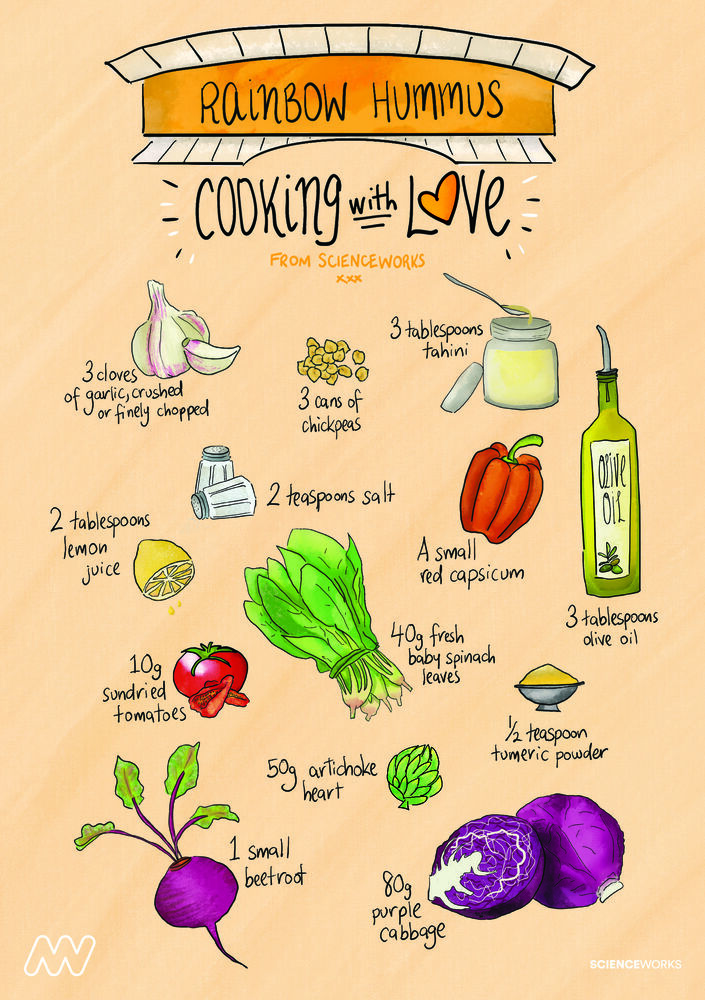 RAINBOW HUMMUS
COOKING with LOVE
FROM SCIENCEWORKS
xxx
3 cloves
of garlic, crushed
or finely chopped
3 cans of
chickpeas
3 tablespoons
tahini
OLIVE
OIL
3 tablespoons
olive oil
2 teaspoons salt
2 tablespoons
lemon
juice
A small
red capsicum
40g fresh
baby spinach
leaves
10g
sundried
tomatoes
1/2 teaspoon
tumeric powder
50g artichoke
heart
1 small
beetroot
80g
purple
cabbage
SCIENCEWORKS